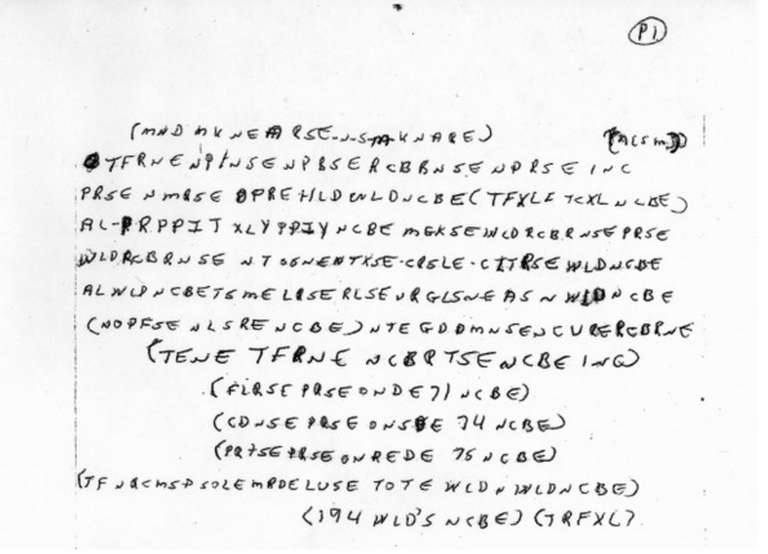 P1
(MND MKNEARSE-N-S-M-KNARE) (ACSM)
TFRNENPINSENPBSERCBBNSENPRSEINC
PRSENMRSEOPREHLDWLDNCBE(TFXLFTCXLNCBE)
AL-PRPPIT XLYPPIYNCBE MGKSEWLDRCBRNSEPRSE
WLDRCBRNSE NTSGNENTXSE-CRSLE-CITRSEWLDNCBE
ALWLDNCBETSMELRSERLSENRGLSNEASNWLDNCBE
(NOPFSENLSRENCBE)NTEGDDMNSENCURERCBRNE
(TENE TFRNE NCBRTSENCBEING)
(FLRSE PRSEONDE71NCBE)
(CDNSE PRSEONSDE 74NCBE)
(PRTSEPRSEONREDE 75NCBE)
(TFNRCMSPSOLEMRDELUSE TOTE WLDNWLDNCBE)
(194 WLD'S NCBE)(TRFXL)